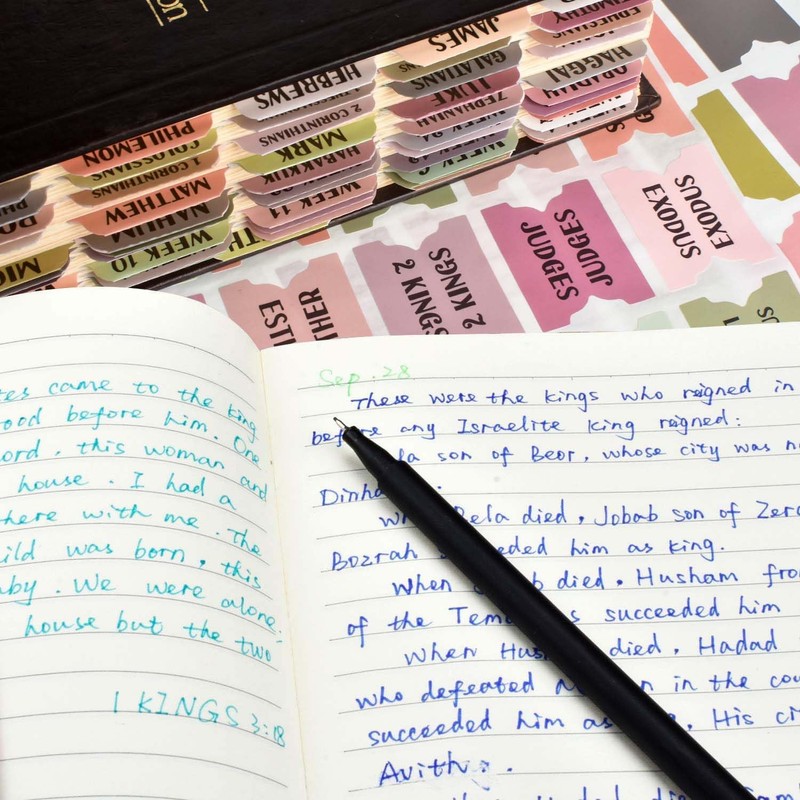 JAMES
TIMOTHY
EPHESIANS
HEBREWS
GALATIANS
HAGGAI
2 CORINTHIANS
LUKE
OBADIAH
PHILEMON
COLOSSIANS
MARK
ZEPHANIAH
1 CORINTHIANS
HABAKKUK
MATTHEW
WEEK 11
NAHUM
WEEK 10
EXODUS
EXODUS
JUDGES
JUDGES
2 KINGS
2 KINGS
tes came to the king
ood before him. One
ord, this woman and
house. I had a
here with me. The
ild was born, this
aby. We were alone;
house but the two
1 KINGS 3:18
Sep. 28
These were the kings who reigned in
before any Israelite king reigned:
la son of Beor, whose city was n
Dinha
Bela died, Jobab son of Zer
Bozrah eded him as king.
When b died, Husham fro
of the Tem s succeeded him
When Hus died, Hadad
who defeated n in the cou
succeeded him as , His ci
Avith.